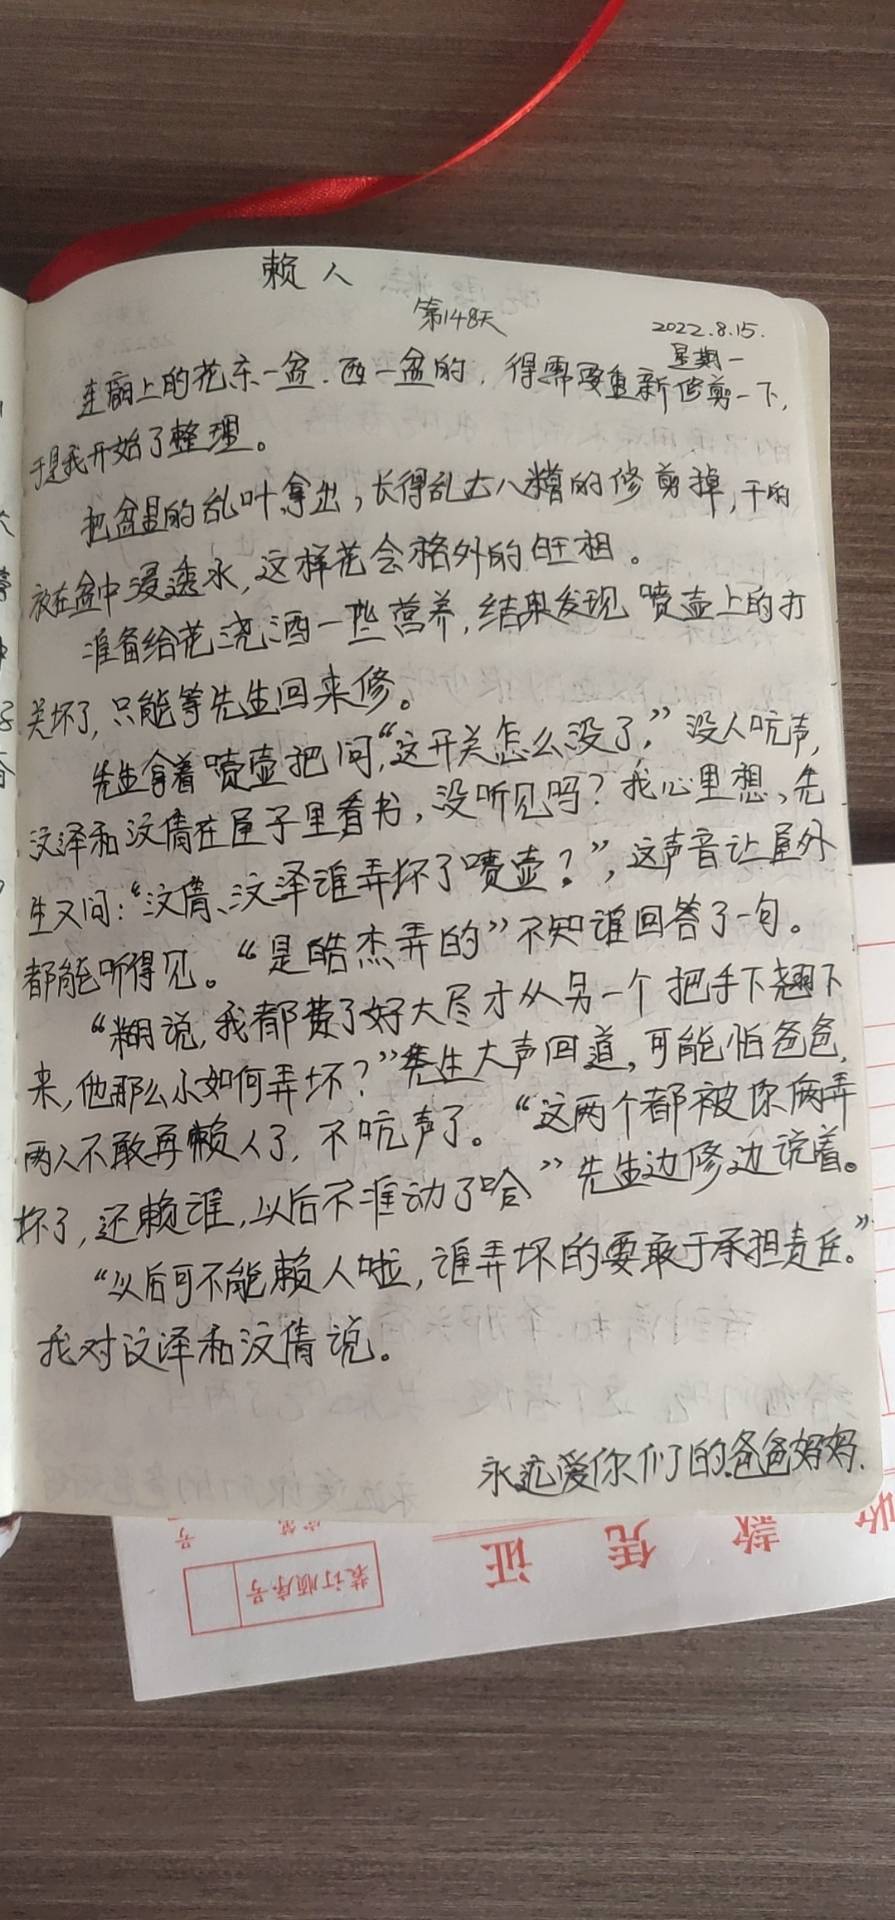 赖人
第148天
2022.8.15.
星期一
走廊上的花东一盆.西一盆的,得需要重新修剪一下,
于是我开始了整理。
把盆里的乱叶拿出,长得乱七八糟的修剪掉,干的
放在盆中浸透水,这样花会格外的旺相。
准备给花浇洒一些营养,结果发现喷壶上的打
关坏了,只能等先生回来修。
先生拿着喷壶把问,“这开关怎么没了,”没人吭声,
汶泽和汶倩在屋子里看书,没听见吗?我心里想,先
生又问:“汶倩、汶泽谁弄坏了喷壶?”,这声音让屋外
都能听得见。“是皓杰弄的”不知谁回答了一句。
“糊说,我都费了好大尽才从另一个把手下翘下
来,他那么小如何弄坏?”先生大声回道,可能怕爸爸,
两人不敢再赖人了,不吭声了。“这两个都被你俩弄
坏了,还赖谁,以后不准动了哈”先生边修边说着。
“以后可不能赖人啦,谁弄坏的要敢于承担责任。”
我对汶泽和汶倩说。
永远爱你们的爸爸妈妈.
收款凭证
装订顺序号